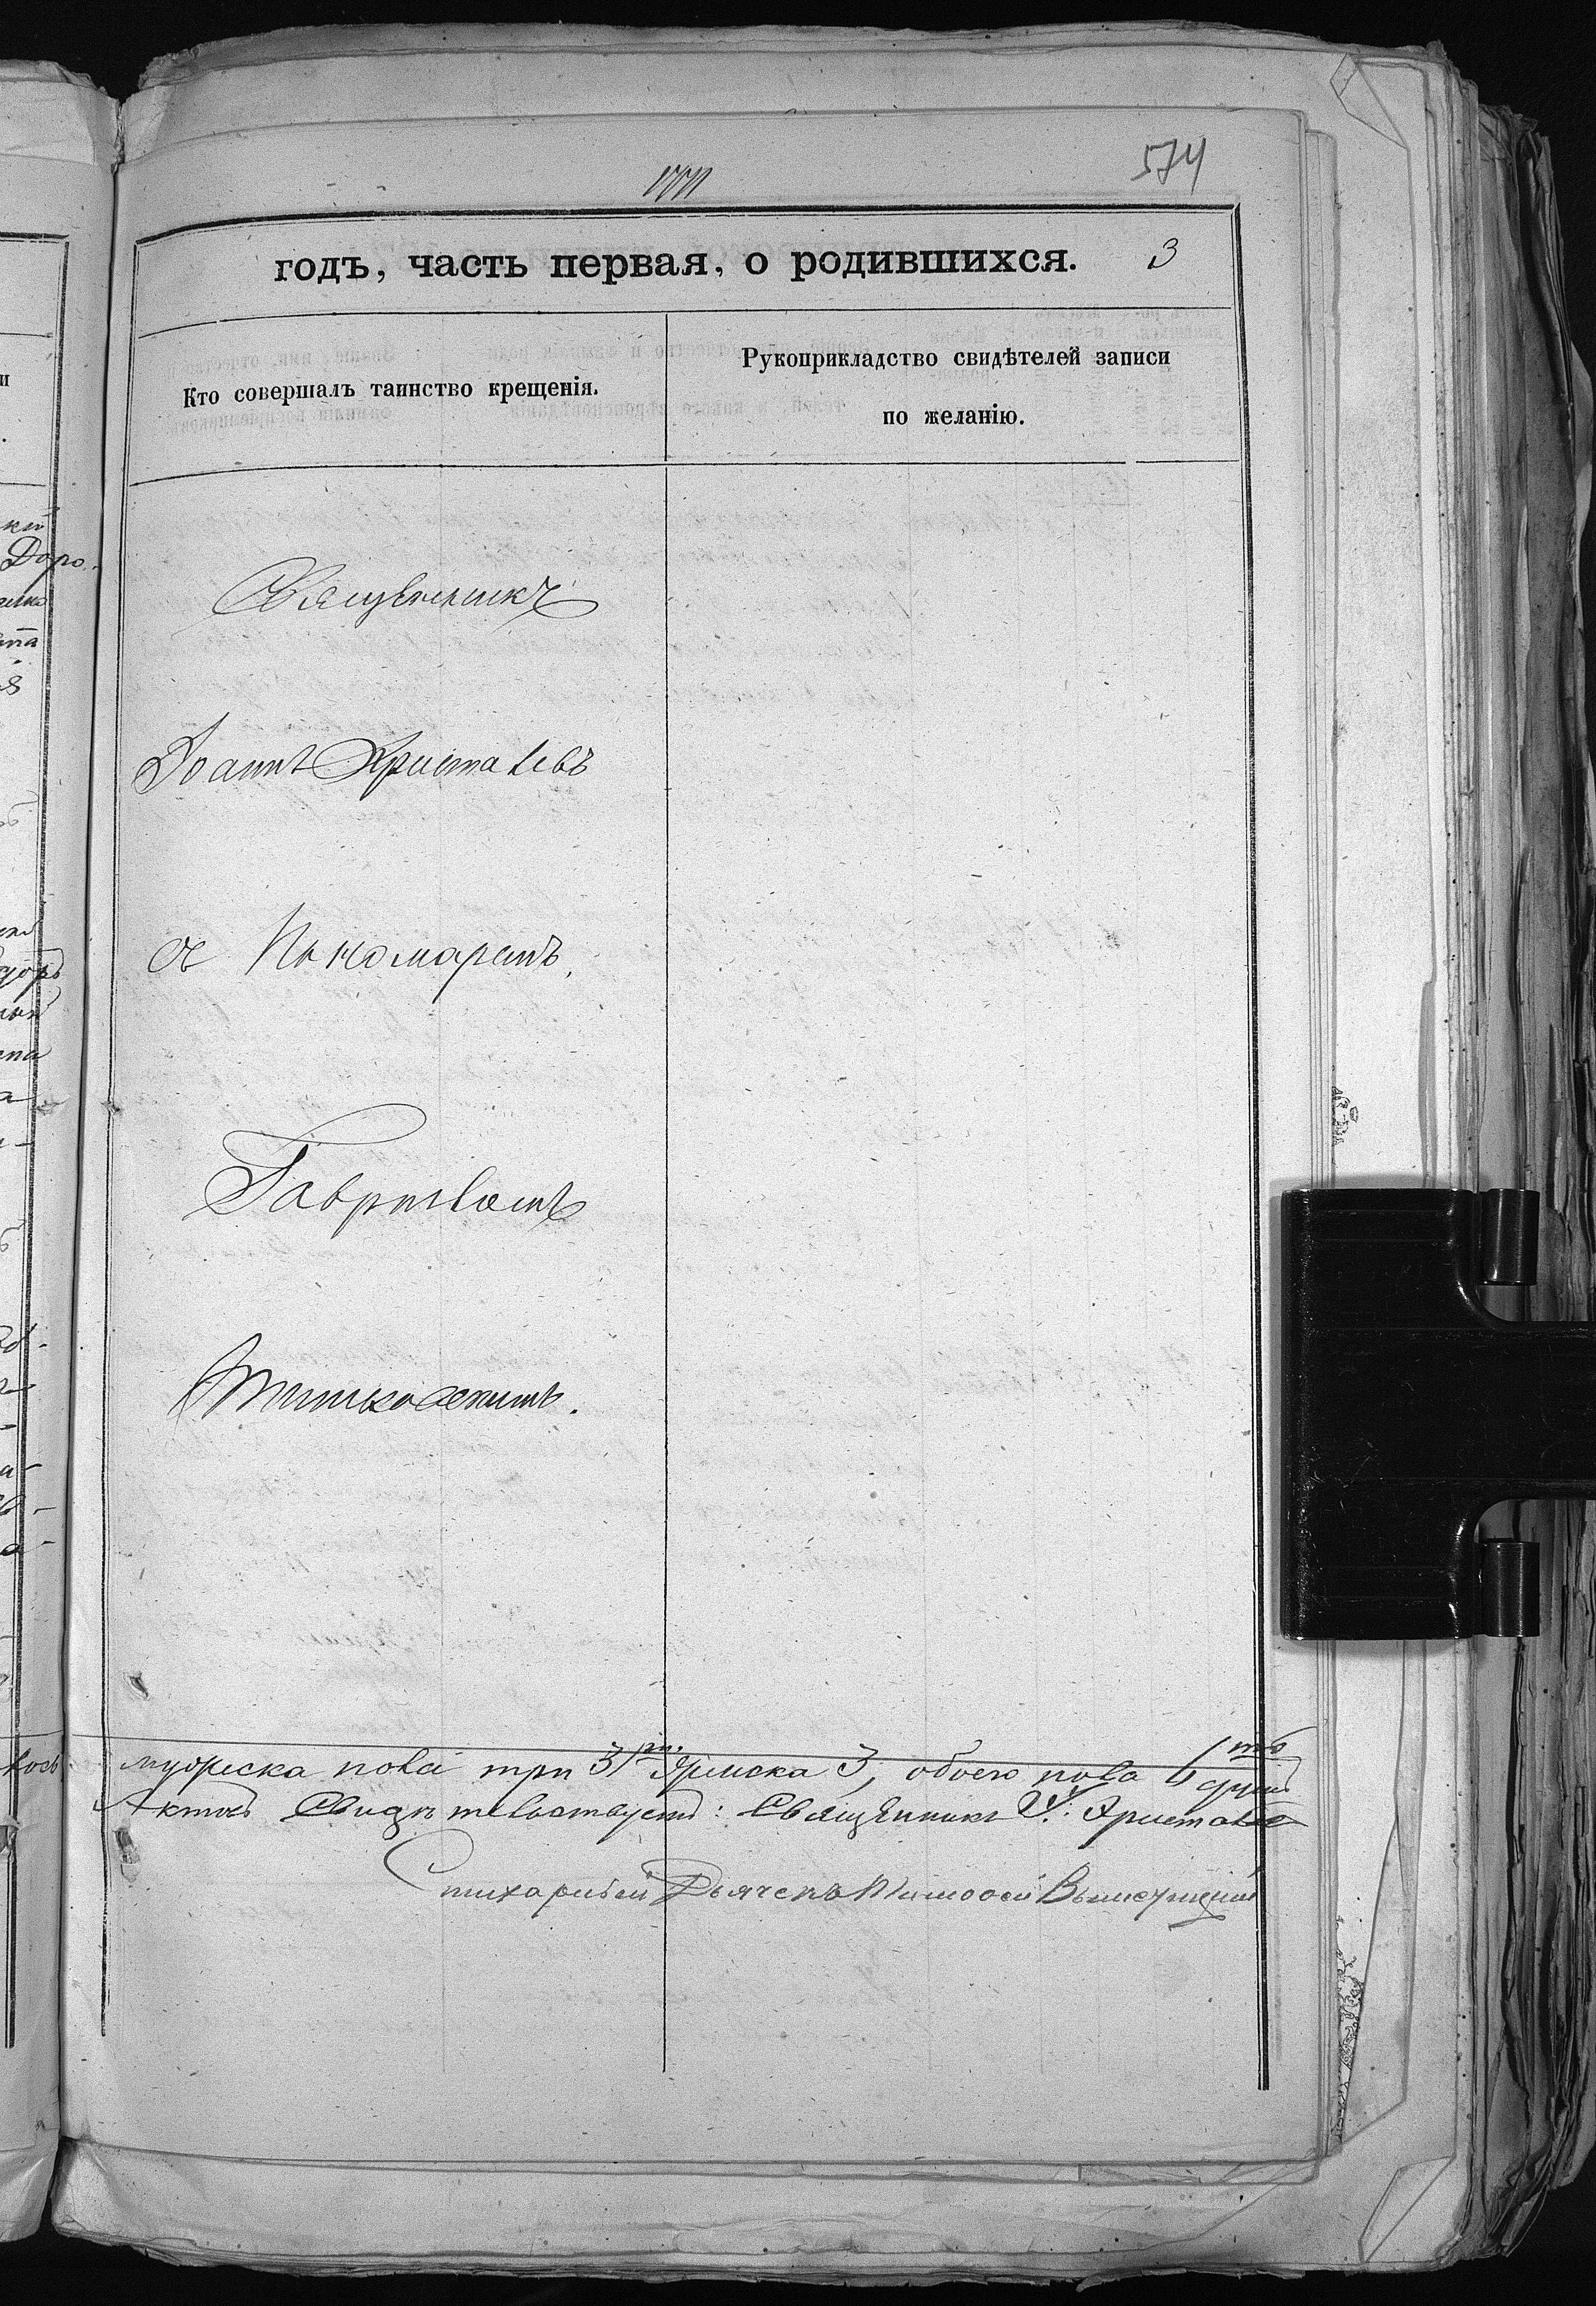 574
годъ, часть первая, о родившихся. 3
Кто совершалъ таинство крещенія.
Рукоприкладство свидѣтелей записи
по желанію.
Священникъ
Іоаннъ Христалевъ
съ Пономаремъ
Гавриломъ
мужеска пола три 3, женска 3, обоего пола 6 душъ
Актомъ Свидѣтельствуетъ: Священникъ І. Христал
Стихарный Дьячекъ Тимоѳей